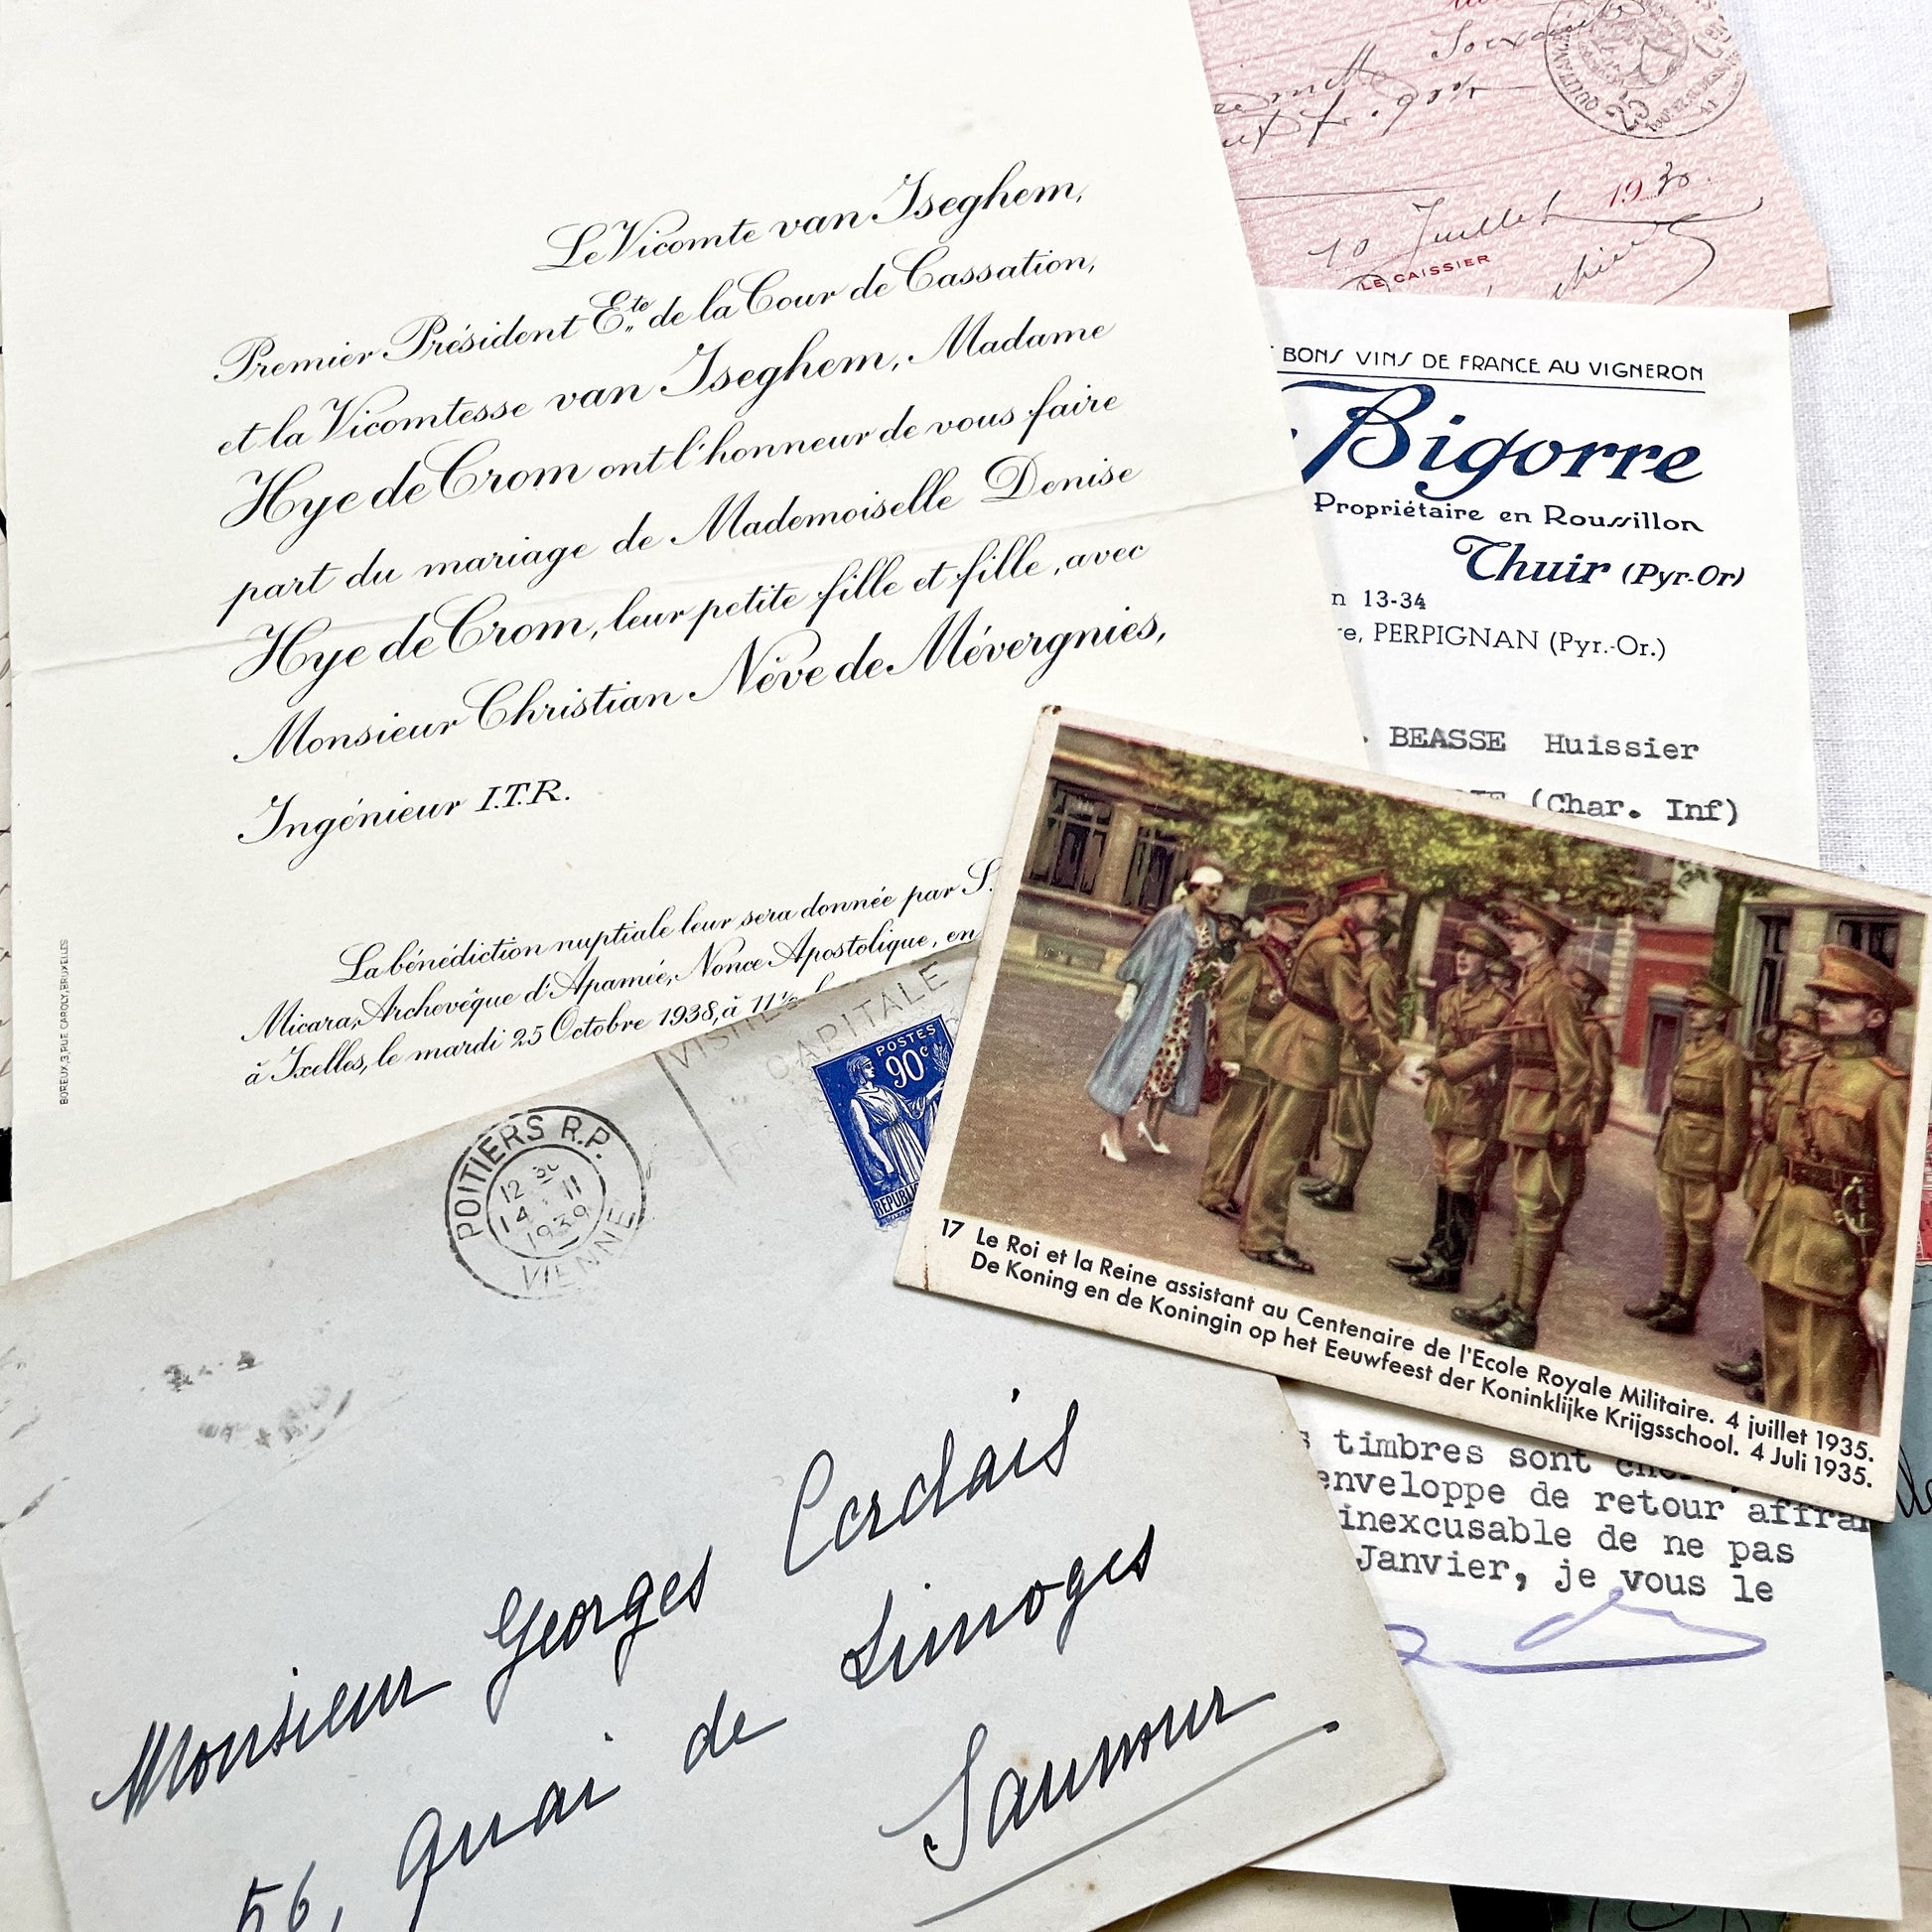 Le Vicomte van Iseghem,
Premier Président Ete de la Cour de Cassation,
et la Vicomtesse van Iseghem, Madame
Hye de Crom ont l'honneur de vous faire
part du mariage de Mademoiselle Denise
Hye de Crom, leur petite fille et fille, avec
Monsieur Christian Nève de Mévergnies,
Ingénieur I.T.R.
La bénédiction nuptiale leur sera donnée par S.
Micara, Archevêque d'Apamée, Nonce Apostolique, en
à Ixelles, le mardi 25 Octobre 1938, à 11½
BOREUX, 3, RUE CAROLY, BRUXELLES
10 Juillet 1930.
LE CAISSIER
BONS VINS DE FRANCE AU VIGNERON
Bigorre
Propriétaire en Roussillon
Thuir (Pyr-Or)
13-34
PERPIGNAN (Pyr.-Or.)
BEASSE Huissier
(Char. Inf)
17 Le Roi et la Reine assistant au Centenaire de l'Ecole Royale Militaire. 4 juillet 1935.
De Koning en de Koningin op het Eeuwfeest der Koninklijke Krijgsschool. 4 Juli 1935.
timbres sont
enveloppe de retour
inexcusable de ne pas
Janvier, je vous le
VISITEZ
CAPITALE
POSTES
90c
POITIERS R.P.
12
14 11
1939
VIENNE
Monsieur Georges Cordais
56, Quai de Limoges
Saumur